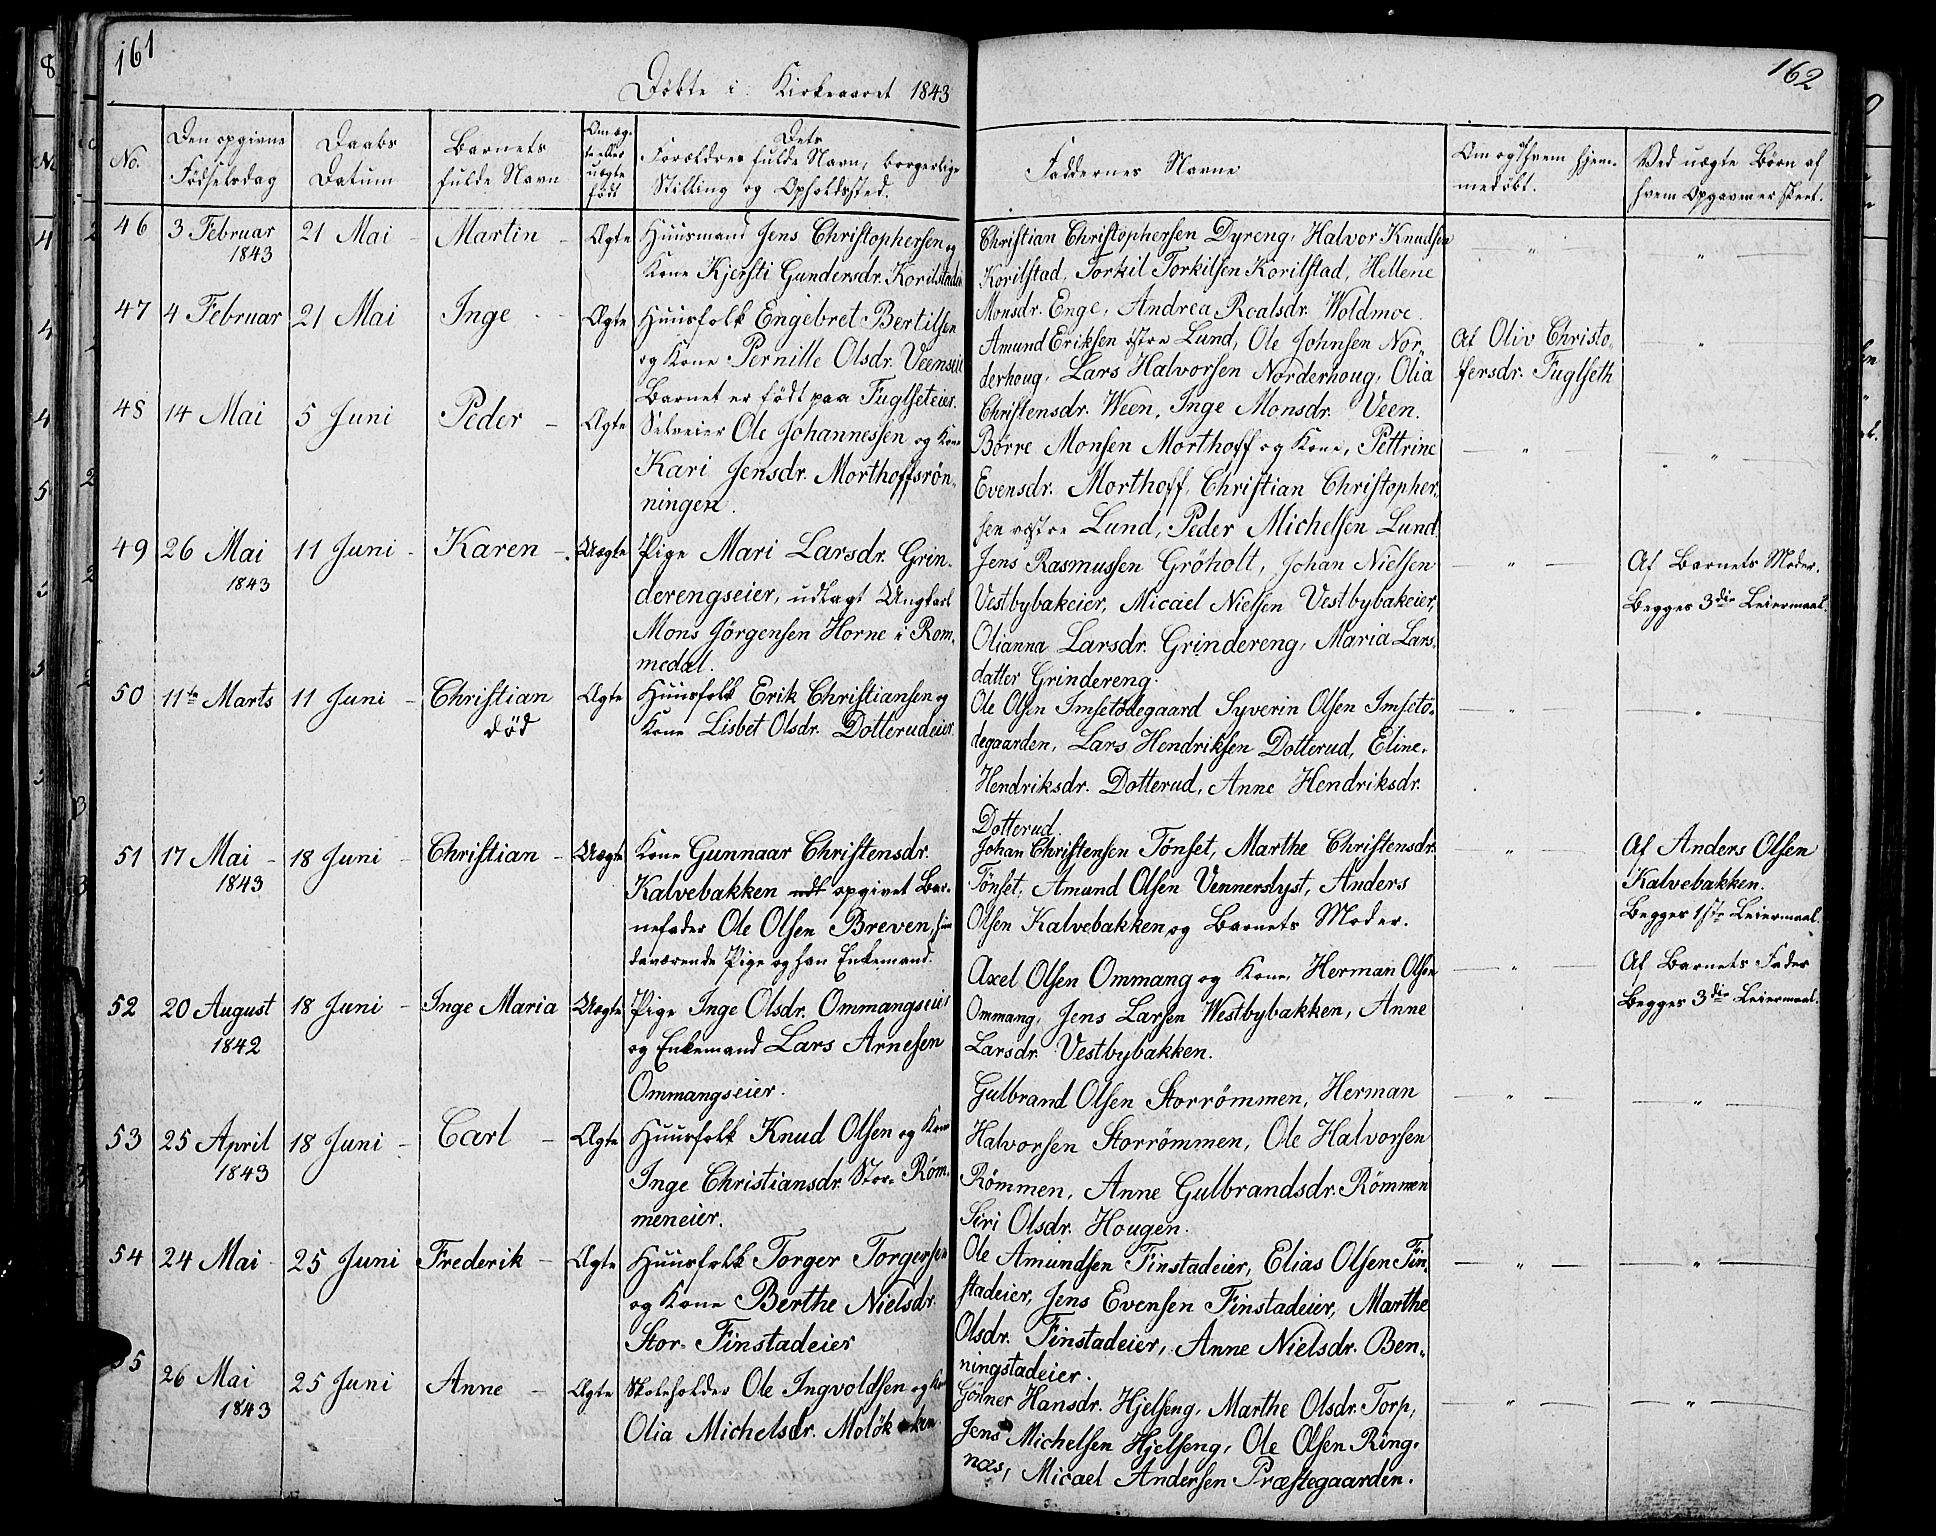 161
Döbte i Kirkeaaret 1843
No.
Den opgivne
Födselsdag
Daabs
Datum
Barnets
fulde Navn
Om æg-
te eller
uægte
födt
Dets
Forældres fulde Navn, borgerlige
Stilling og Opholdssted.
46
3 Februar
1843
21 Mai -
Martin -
Ægte
Huusmand Jens Christophersen og
Kone Kjersti Gundersdr. Korilstadeie
47
4 Februar
21 Mai
Inge -
Ægte
Huusfolk Engebret Bertilsen
og Kone Pernille Olsdr. Veenseie
Barnet er födt paa Fuglseteier.
48
14 Mai
5 Juni
Peder -
Ægte
Selveier Ole Johannessen og Kone
Kari Jensdr. Morthoffsrön-
ningen.
49
26 Mai
1843
11 Juni -
Karen -
Uægte
Pige Mari Larsdr. Grin-
derengseier, udlagt Ungkarl
Mons Jörgensen Horne i Rom-
medal.
50
11te Marts
11 Juni -
Christian
död
Ægte
Huusfolk Erik Christiansen og
Kone Lisbet Olsdr. Dotterudeier
51
17 Mai -
1843
18 Juni -
Christian -
Uægte
Kone Gunnaar Christensdr.
Kalvebakken opgivet Bar-
nefader Ole Olsen Breven, hun
daværende Pige og han Enkemand.
52
20 August
1842
18 Juni -
Inge Maria
Uægte
Pige Inge Olsdr. Ommangseier
og Enkemand Lars Arnesen
Ommangseier.
53
25 April
1843
18 Juni -
Carl -
Ægte
Huusfolk Knud Olsen og Kone
Inge Christiansdr. Stor-Röm-
meneier.
54
24 Mai -
25 Juni
Frederik -
Ægte
Huusfolk Torger Torgersen
og Kone Berthe Nielsdr.
Stor-Finstadeier
55
26 Mai
1843
25 Juni
Anne -
Ægte
Skoleholder Ole Ingvoldsen og Kone
Olia Michelsdr.
162
Faddernes Navne
Om og af hvem hjem-
medöbt.
Ved uægte Börn af
hvem Opgaven er skeet.
Christian Christophersen Dyreng, Halvor Knudsen
Korilstad, Torkil Torkilsen Korilstad, Hellene
Monsdr. Enge, Andrea Roalsdr. Woldmoe.
Amund Eriksen östre Lund, Ole Johnsen Nor-
derhoug, Lars Halvorsen Norderhoug, Olia
Christensdr. Ween, Inge Monsdr. Veen.
Af Oliv Christo-
fersdr. Fuglseth
Börre Monsen Morthoff og Kone, Pettrine
Evensdr. Morthoff, Christian Christopher-
sen vestre Lund, Peder Michelsen Lund
Jens Rasmussen Gröholt, Johan Nielsen
Vestbybakeier, Micael Nielsen Vestbybakeier,
Olianna Larsdr. Grindereng, Maria Lars-
datter Grindereng.
Af Barnets Moder.
Begges 3die Leiermaal.
Ole Olsen Imsetödegaard Syverin Olsen Imsetö-
degaarden, Lars Hendriksen Dotterud, Eline
Hendriksdr. Dotterud, Anne Hendriksdr.
Dotterud.
Johan Christensen Tönset, Marthe Christensdr.
Tönset, Amund Olsen Vennerslyst, Anders
Olsen Kalvebakken og Barnets Moder.
Af Anders Olsen
Kalvebakken.
Begges 1ste Leiermaal.
Axel Olsen Ommang og Kone, Herman Olsen
Ommang, Jens Larsen Westbybakken, Anne
Larsdr. Vestbybakken.
Af Barnets Fader
Begges 3die Leiermaal.
Gulbrand Olsen Storrömmen, Herman
Halvorsen Storrömmen, Ole Halvorsen
Römmen, Anne Gulbrandsdr. Römmen
Siri Olsdr. Hougen.
Ole Amundsen Finstadeier, Elias Olsen Fin-
stadeier, Jens Evensen Finstadeier, Marthe
Olsdr. Finstadeier, Anne Nielsdr. Ben-
ningstadeier.
Hansdr. Hjelseng, Marthe Olsdr. Torp,
Jens Michelsen Hjelseng, Ole Olsen Ring-
næs, Micael Andersen Præstegaarden.